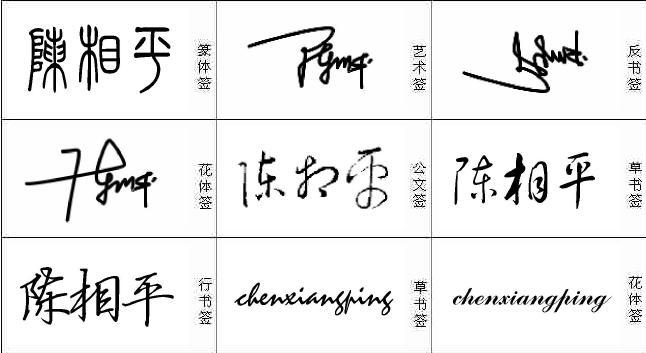 陳相平
篆体签
艺术签
反书签
花体签
陈相平
公文签
陈相平
草书签
陈相平
行书签
chenxiangping
草书签
chenxiangping
花体签